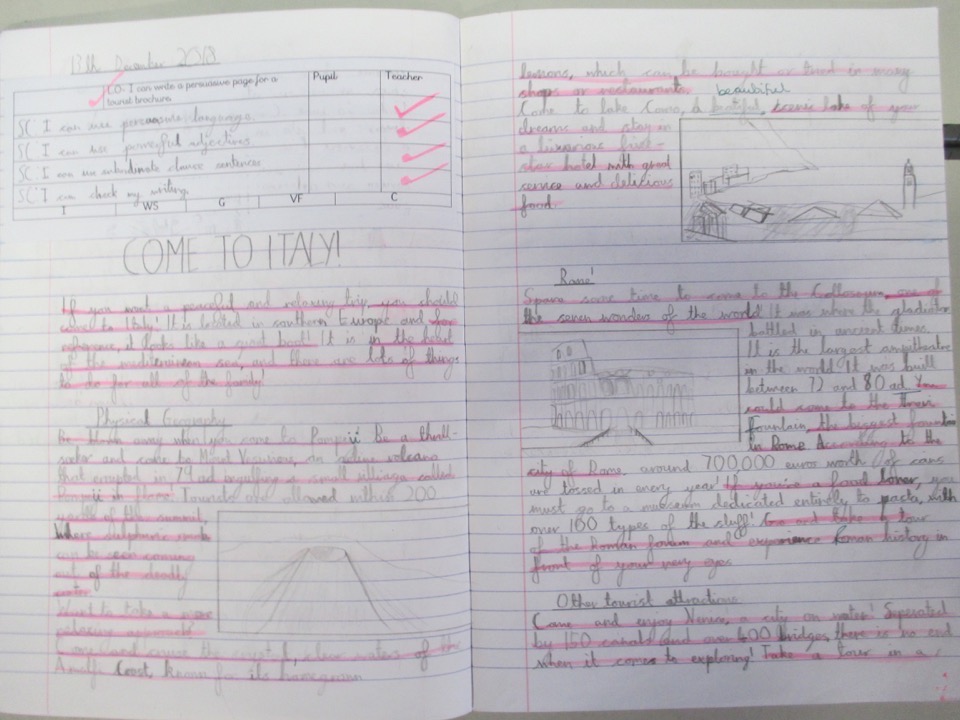 13th December 2018
LO: I can write a persuasive page for a tourist brochure.
Pupil
Teacher
SC I can use persuasive language.
SC I can use powerful adjectives
SC I can use subordinate clause sentences
SC I can check my writing.
I WS G VF C
COME TO ITALY!
If you want a peaceful and relaxing trip, you should
come to Italy! It is located in southern Europe and for
reference, it looks like a giant boot! It is in the heart
of the sea, and there are lots of things
to do for all of the family!
Physical Geography
away when you come to Pompeii Be a thrill-
and come to Mount an active volcano
that erupted in 79 ad engulfing a small called
Pompeii in Tourists are allowed within 200
of the summit,
Where
can be seen coming
out of the deadly
Want to take a more
approach?
Come and the crystal, clear waters of the
Amalfi Coast, known for its
lessons, which can be bought or tried in many
shops or restaurants.
beautiful
Come to lake Como, a scenic lake of your
dreams and stay in
a five-
star hotel with great
service and delicious
food.
Rome!
some time to come to the one of
the seven wonders of the world! It was where the
battled in ancient times.
It is the largest
in the world! It was built
between 72 and 80 ad. You
could come to the
fountain, the biggest fountain
in Rome According to the
city of Rome, around 700,000 euros worth of
are tossed in every year! If you're a food lover, you
must go to a dedicated entirely to with
over 160 types of the stuff! Come and take a tour
of the Roman and experience Roman history in
front of your very eyes
Other tourist attractions
Come and enjoy Venice, a city on water! Seperated
by 150 canals and over 400 bridges, there is no end
when it comes to exploring! Take a tour in a